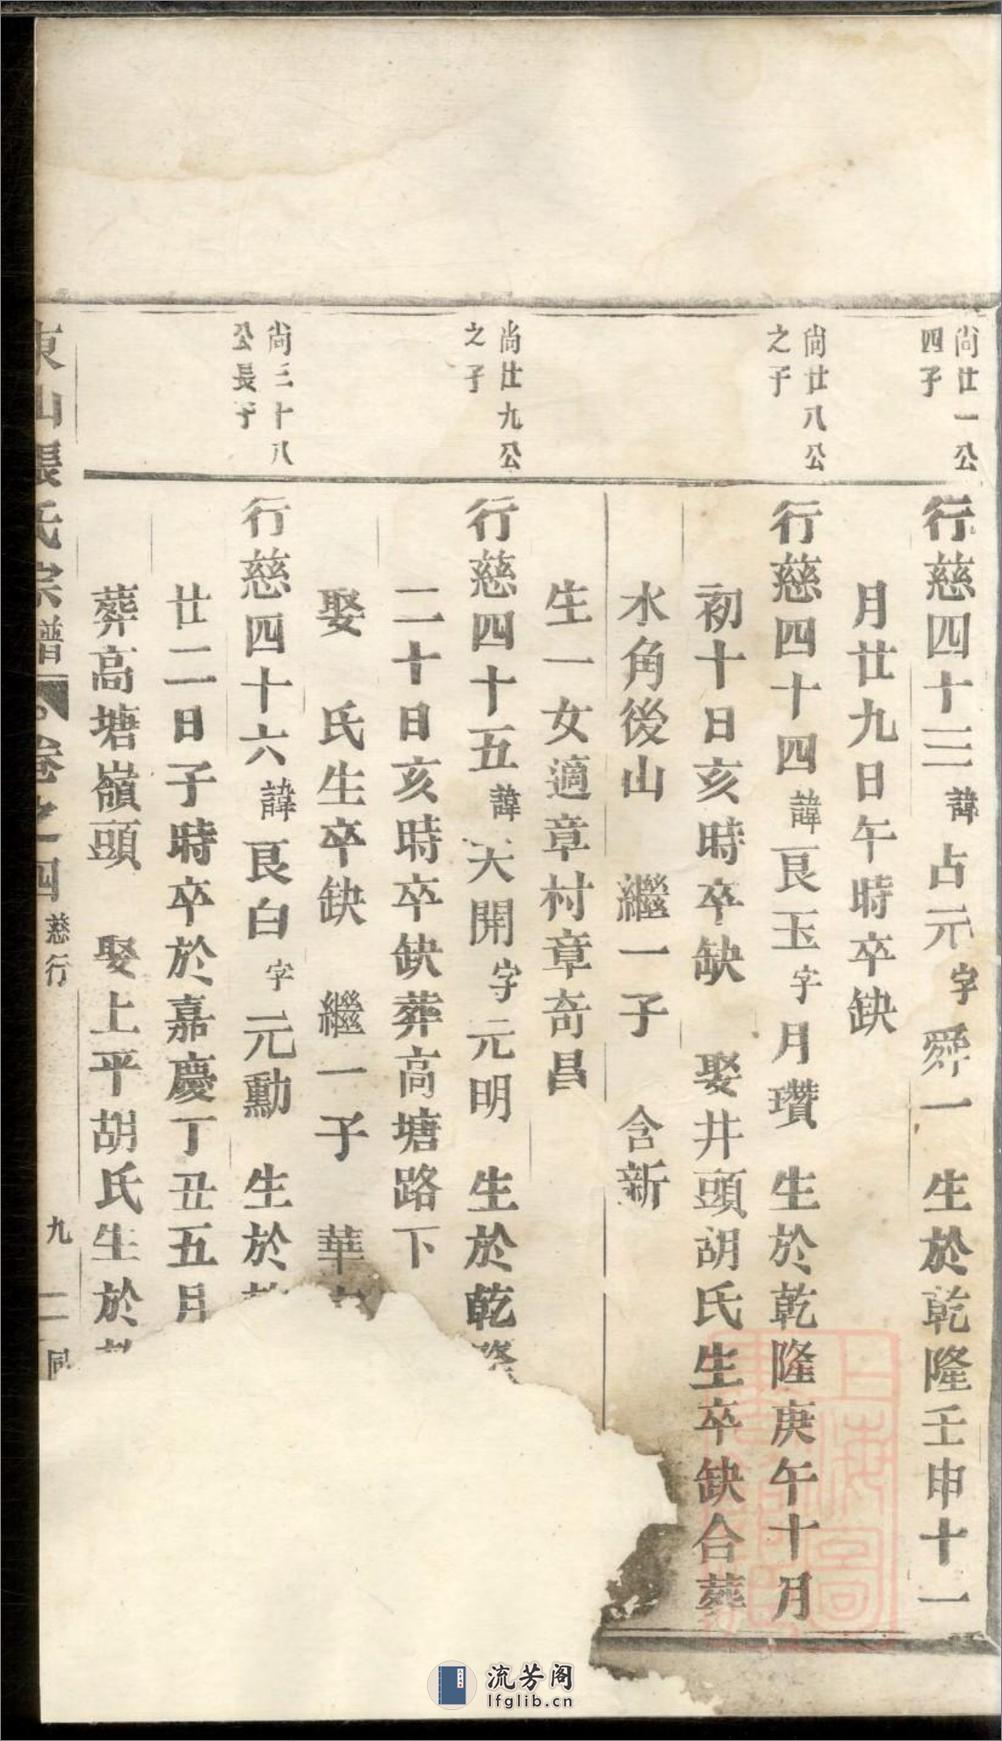 尚廿一公
四子
行慈四十三諱占元字舜一生於乾隆壬申十一
月廿九日午時卒缺
尚廿八公
之子
行慈四十四諱艮玉字月瓚生於乾隆庚午十月
初十日亥時卒缺 娶井頭胡氏生卒缺合葬
水角後山 繼一子 含新
生一女適章村章奇昌
尚廿九公
之子
行慈四十五諱天開字元明 生於乾隆
二十日亥時卒缺葬高塘路下
娶 氏生卒缺 繼一子 華
尚三十八
公長子
行慈四十六諱艮白字元勳 生於
廿二日子時卒於嘉慶丁丑五月
葬高塘嶺頭 娶上平胡氏生於
東山張氏宗譜 卷之四 慈行 九 二 同
上海圖
流芳阁
lfglib.cn